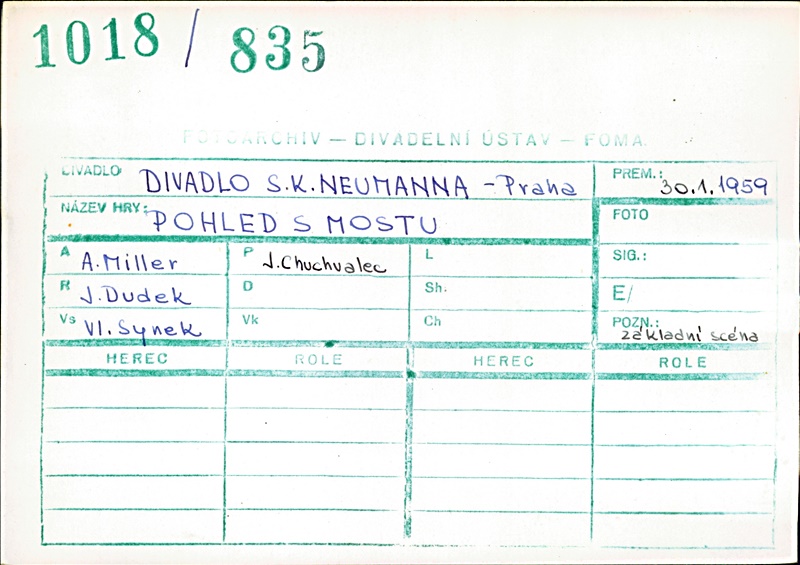 1018 / 835
FOTOARCHIV — DIVADELNÍ ÚSTAV — FOMA
DIVADLO: DIVADLO S.K.NEUMANNA - Praha
PREM.: 30.1.1959
NÁZEV HRY: POHLED S MOSTU
FOTO
A A.Miller
P J.Chuchvalec
L
SIG.:
R J.Dudek
D
Sh.
E/
Vs Vl.Synek
Vk
Ch
POZN.: základní scéna
HEREC ROLE HEREC ROLE